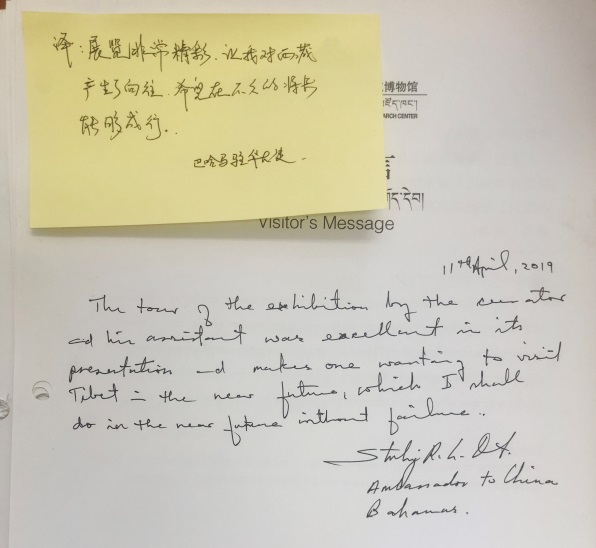 译：展览非常精彩．让我对西藏
产生了向往．希望在不久的将来
能够成行．．
巴哈马驻华大使．
博物馆
ARCH CENTER
言
Visitor's Message
11th April, 2019
The tour of the exhibition by the curator
and his assistant was excellent in its
presentation and makes one wanting to visit
Tibet in the near future, which I shall
do in the near future without failure..
Ambassador to China
Bahamas.